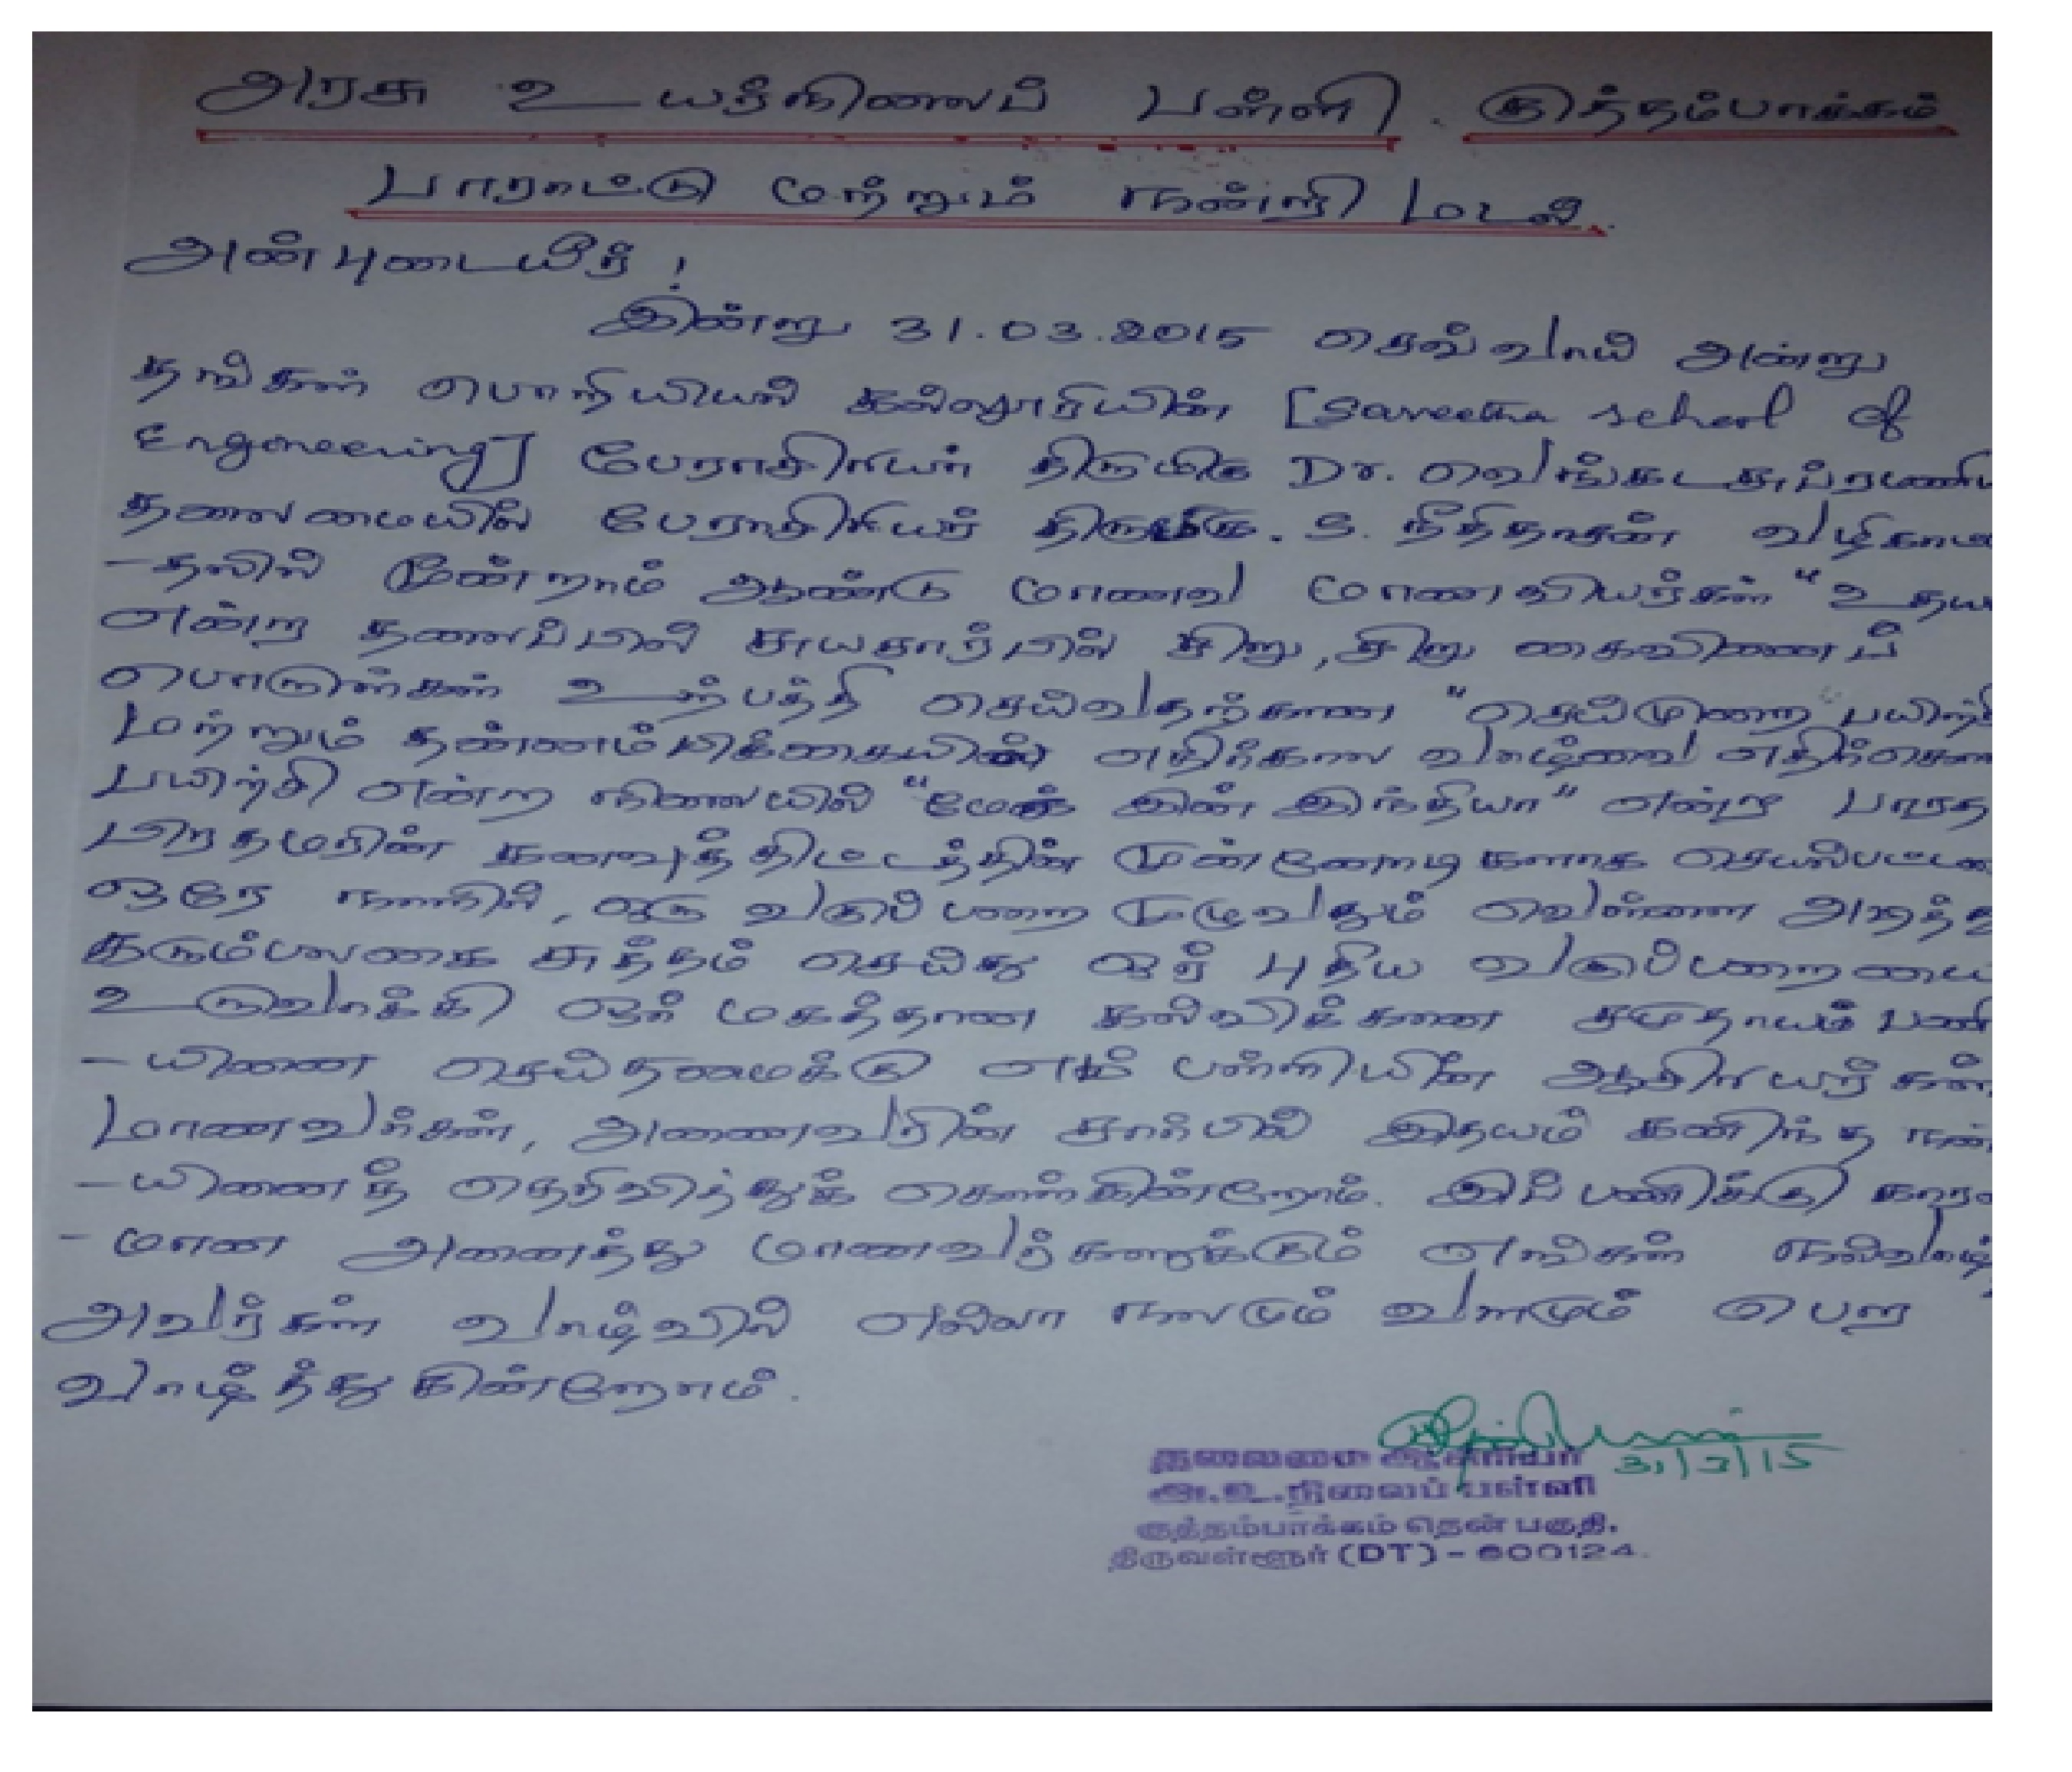 அரசு உயர்நிலைப் பள்ளி. குத்தம்பாக்கம்
பாராட்டு மற்றும் நன்றி மடல்.
அன்புடையீர்!
இன்று 31.03.2015 செவ்வாய் அன்று
தங்கள் பொறியியல் கல்லூரியின் [Saveetha school of
Engineering] பேராசிரியர் திருமிகு Dr. வெங்கடசுப்ரமணி
தலைமையில் பேராசிரியர் திருமிகு. S. நீதிதாசன் வழிகாட
-தலில் மூன்றாம் ஆண்டு மாணவ மாணவியர்கள் "உதய
என்ற தலைப்பில் சுயசார்பில் சிறு, சிறு கைவினைப்
பொருள்கள் உற்பத்தி செய்வதற்கான "செய்முறை" பயிற்சி
மற்றும் தன்னம்பிக்கையின் எதிர்கால வாழ்வை எதிர்கொள
பயிற்சி என்ற நிலையில் "மேக் இன் இந்தியா" என்ற பாரத
பிரதமரின் கனவுத்திட்டத்தின் முன்னோடிகளாக செயல்பட்டன
ஒரே நாளில், ஒரு வகுப்பறை முழுவதும் வெள்ளை அடித்து
கரும்பலகை சுத்தம் செய்து ஓர் புதிய வகுப்பறையை
உருவாக்கி ஓர் மகத்தான கல்விக்கான சமுதாயப் பணி
-யினை செய்தமைக்கு எம் பள்ளியின் ஆசிரியர்கள்,
மாணவர்கள், அனைவரின் சார்பில் இதயம் கனிந்த நன்
-யினைத் தெரிவித்துக் கொள்கின்றோம். இப்பணிக்கு காரண
-மான அனைத்து மாணவர்களுக்கும் எங்கள் நல்வாழ்
அவர்கள் வாழ்வில் எல்லா நலமும் வளமும் பெற
வாழ்த்துகின்றோம்.
31/3/15
தலைமை ஆசிரியர்
அ.உ.நிலைப் பள்ளி
குத்தம்பாக்கம் தென் பகுதி.
திருவள்ளூர் (DT) - 600124.